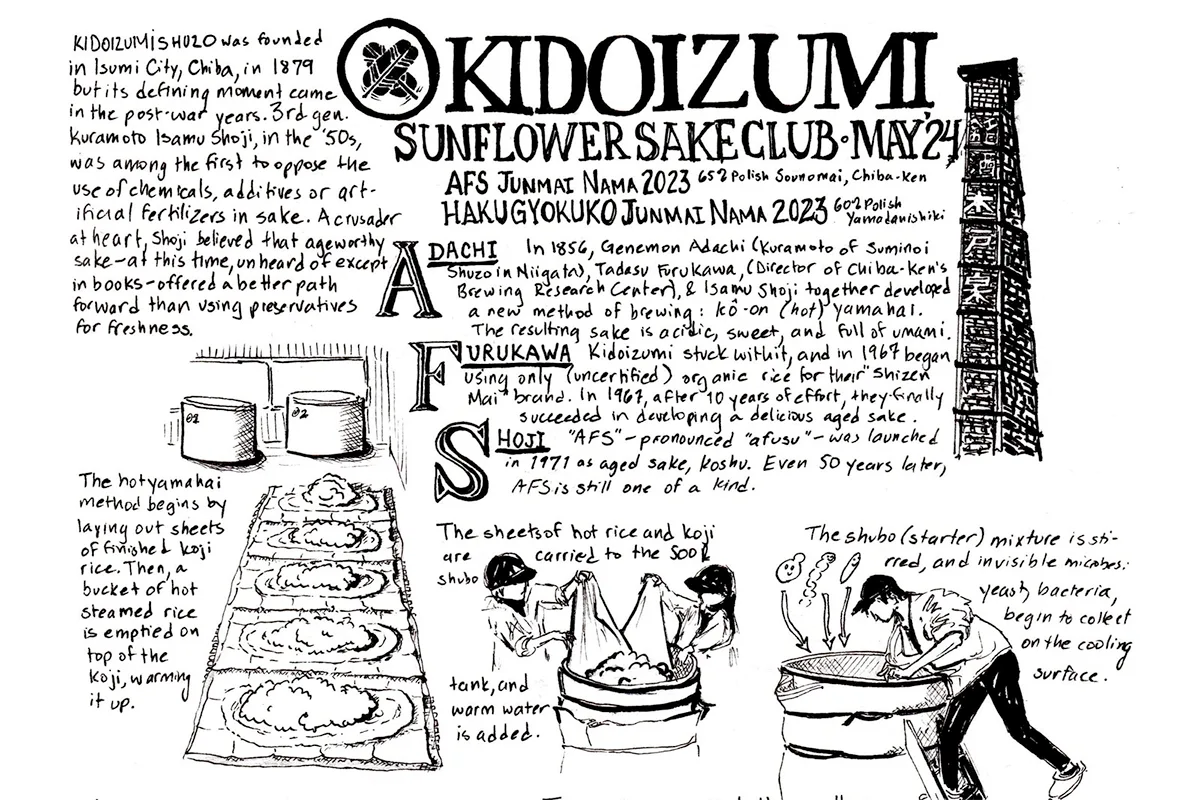 KIDOIZUMISHUZO was founded
in Isumi City, Chiba, in 1879
but its defining moment came
in the post-war years. 3rd gen.
Kuramoto Isamu Shoji, in the '50s,
was among the first to oppose the
use of chemicals, additives or art-
ificial fertilizers in sake. A crusader
at heart, Shoji believed that ageworthy
sake-at this time, unheard of except
in books-offered a better path
forward than using preservatives
for freshness.
KIDOIZUMI
SUNFLOWER SAKE CLUB · MAY '24
AFS JUNMAI NAMA 2023 65% Polish Sounomai, Chiba-ken
HAKUGYOKUKO JUNMAI NAMA 2023 60% Polish
Yamadanishiki
ADACHI In 1856, Genemon Adachi (Kuramoto of Suminoi
Shuzo in Niigata), Tadasu Furukawa, (Director of Chiba-Ken's
Brewing Research Center), & Isamu Shoji together developed
a new method of brewing: kō-on (hot) yamahai.
The resulting sake is acidic, sweet, and full of umami.
FURUKAWA Kidoizumi stuck with it, and in 1967 began
using only (uncertified) organic rice for their "Shizen
Mai" brand. In 1967, after 10 years of effort, they finally
succeeded in developing a delicious aged sake.
SHOJI "AFS"-pronounced "afusu"-was launched
in 1971 as aged sake, koshu. Even 50 years later,
AFS is still one of a kind.
01
02
The hot yamahai
method begins by
laying out sheets
of finished koji
rice. Then, a
bucket of hot
steamed rice
is emptied on
top of the
koji, warming
it up.
The sheets of hot rice and koji
are carried to the 500 l
shubo
tank, and
warm water
is added.
The shubo (starter) mixture is sti-
rred, and invisible microbes:
yeast, bacteria,
begin to collect
on the cooling
surface.